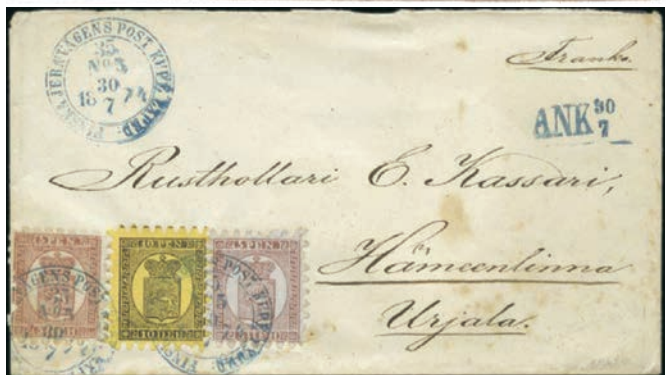 FINSKA JERNVÄGENS POST KUPÉ EXPED.
35
No 3.
30
18 7 74
Franko.
ANK 30
7
Rusthollari E. Kassari,
Hämeenlinna
Urjala.
5 PEN
10 PEN
5 PEN
10